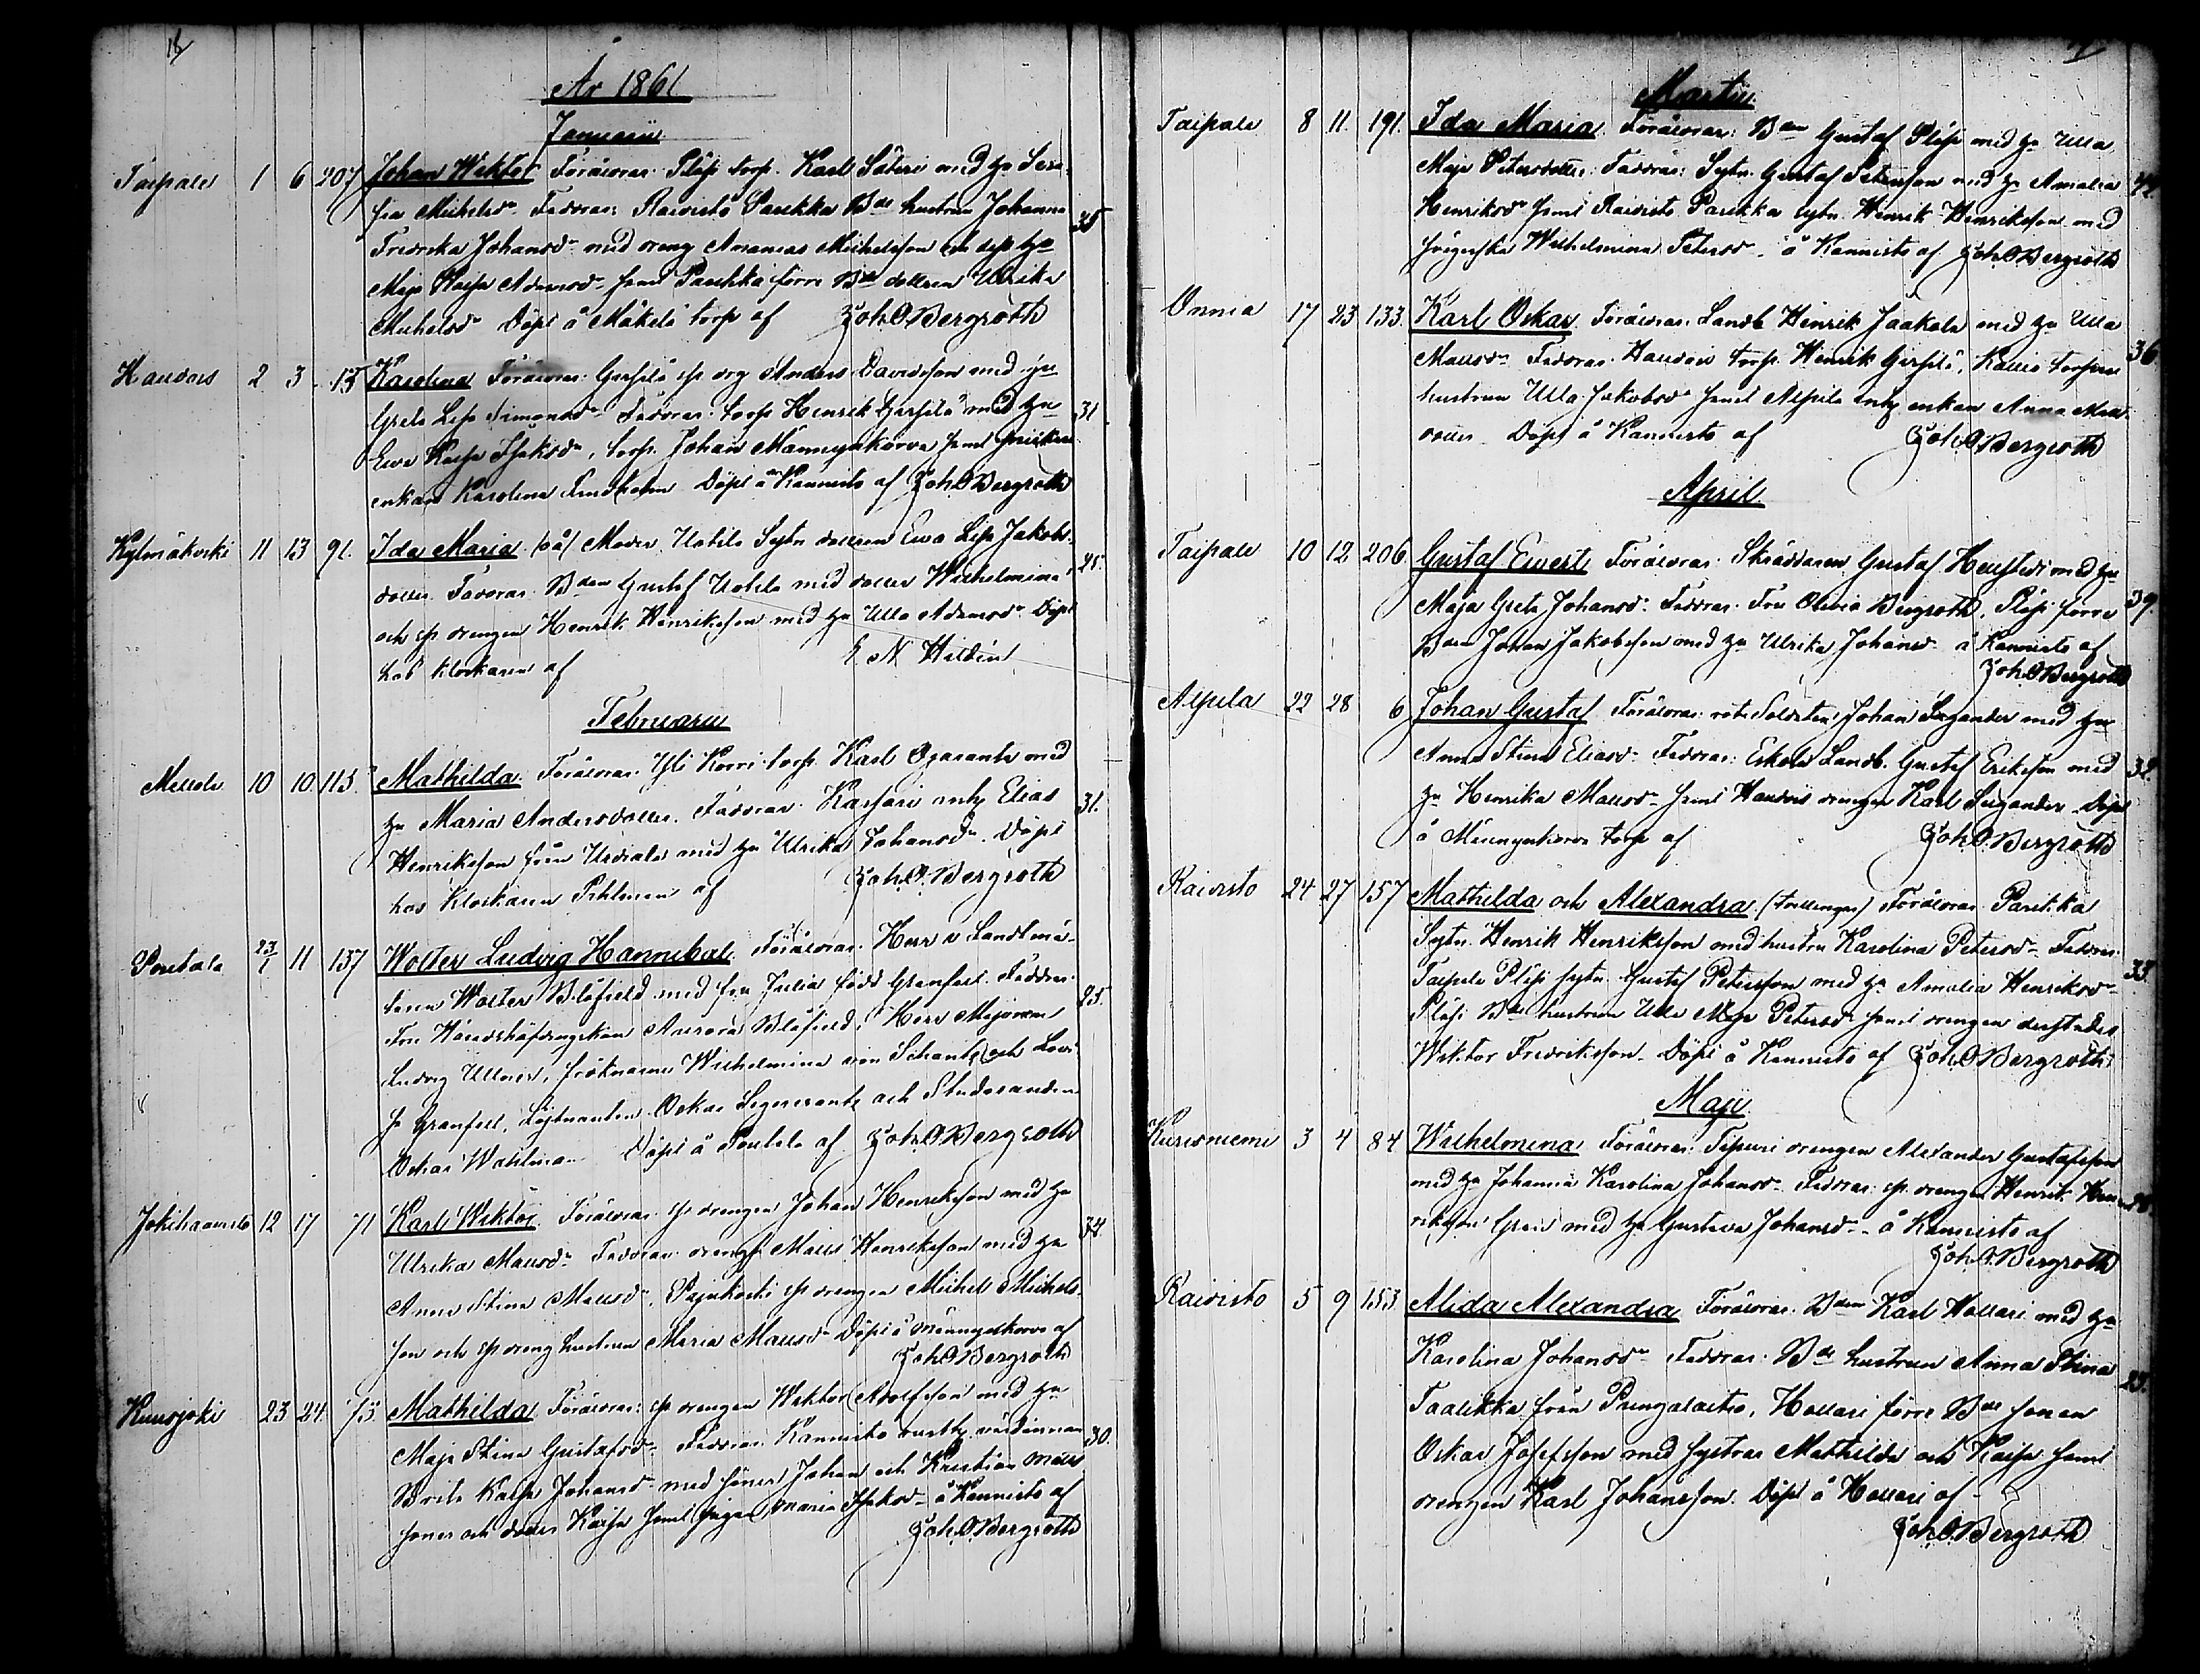 18
År 1861
Januarii
Taipale 1 6 207 Johan Wiktor Föräldrar: Pläsi torp. Karl Säteri med hu Sera-
fia Michelsdr Faddrar: Raivisto Parikka Bde hustrun Johanna 35
Fredrika Johansdr med dreng Ananias Michelsson och hu
Maja Kaisa Adamsdr samt Parikka förre Bde dottren Ulrika
Michelsdr Döpt å Mäkelä torp af Joh. O. Bergroth
Haudois 2 3 15 Karolina Föräldrar: Girsilä drg Anders Davidsson med hu
Greta Lisa Simonsdr Faddrar: torp Henrik Girsilä med hu 31
Ewa Kaisa Isaksdr, torp. Johan Männynkorva samt
enkan Karolina Döpt å Kannisto af Joh. O. Bergroth
Kylmäkoski 11 13 91. Ida Maria (oä) Moder Uotila Sytn dottren Ewa Lisa Jakobs-
dotter. Faddrar: Bden Gustaf Uotila med dotter Wilhelmina 25
och drengen Henrik Henriksson med hu Ulla Adamsdr Döpt
hos klockaren af E N Hildén
Februarii
Mellola 10 10 115. Mathilda Föräldrar: Yli Korri torp. Karl Ojaranta med
hu Maria Andersdotter. Faddrar: Elias 31.
Henriksson från Urdiala med hu Ulrika Johansdr. Döpt
hos Klockaren Pihlman af Joh. O. Bergroth
Pontala 23/1 11 137 Wolter Ludvig Hannibal. Föräldrar: Herr v Landtmä-
taren Wolter Blåfield med fru Julia född Granfelt. Faddrar: 25.
Fru Häradshöfdingskan Aurora Blåfield, Herr Majoren
Ludvig Ullner, fröknarna Wilhelmina von Schantz och Lovi-
sa Granfelt, Löjtnanten Oskar Segercrantz och Studeranden
Oskar Wahlman Döpt å Pontala af Joh. O. Bergroth
Jokihaavisto 12 17 71 Karl Wiktor Föräldrar: drengen Johan Henriksson med hu
Ulrika Mattsdr Faddrar: Matts Henriksson med hu 34
Anna Stina Mattsdr, Pajukoski drengen Michel Michels-
son och dreng hustrun Maria Mattsdr Döpt å Männynkorva af
Joh. O. Bergroth
Kuusjoki 23 24 75 Mathilda Föräldrar: drengen Wiktor Adolfsson med hu
Maja Stina Gustafsdr Faddrar: Kannisto rusth. värdinnan 30.
Brita Kaisa Johansdr med söner Johan och Kristian Matts
söner och dotter Kaisa samt pigan Maria Isaksdr å Kannisto af
Joh. O. Bergroth
Martii
Taipale 8 11. 191. Ida Maria. Föräldrar: Bden Gustaf Pläsi med hu Ulla
Maja Petersdotter. Faddrar: Sytn. Gustaf Petersson med hu Amalia 42
Henriksdr samt Raivisto Parikka sytn. Henrik Henriksson med
svägerska Wilhelmina Petersdr. å Kannisto af Joh. O. Bergroth
Onnia 17 23 133. Karl Oskar Föräldrar: Landb. Henrik Jaakola med hu Ulla
Mattsdr Faddrar: Haudois torp. Henrik Girsilä, Kallio torpare 36
hustrun Ulla Jakobsdr samt Alpila enkan Anna Matts-
dotter Döpt å Kannisto af Joh. O. Bergroth
April
Taipale 10 12 206. Gustaf Ewert Föräldrar: Skräddaren Gustaf Hellstedt med hu
Maja Greta Johansdr. Faddrar: Fru Olivia Bergroth, Pläsi förre 39.
Bden Johan Jakobsson med hu Ulrika Johansdr å Kannisto af
Joh. O. Bergroth
Alpila 22 28 6 Johan Gustaf Föräldrar: rote Soldaten Johan Sugander med hu
Anna Stina Eliasdr Faddrar: Eskola Landb. Gustaf Eriksson med 32.
hu Henrika Mattsdr samt Haudois drengen Karl Sugander Döpt
å Männynkorva torp af Joh. O. Bergroth
Raivisto 24 27 157 Mathilda och Alexandra (tvillingar) Föräldrar: Parikka
Sytn. Henrik Henriksson med hustru Karolina Petersdr Faddrar:
Taipale Pläsi sytn. Gustaf Petersson med hu Amalia Henriksdr 33.
Pläsi Bde hustrun Ulla Maja Petersdr samt drengen derstädes
Wiktor Fredriksson. Döpt å Kannisto af Joh. O. Bergroth
Maji
Kurisniemi 3 4 84 Wilhelmina Föräldrar: Tipuri drengen Alexander Gustafsson
med hu Johanna Karolina Johansdr Faddrar: drengen Henrik Hen-
riksson Grén med hu Gustava Johansdr å Kannisto af
Joh. O. Bergroth
Raivisto 5 9 153. Alida Alexandra Föräldrar: Bden Karl Hollari med hu
Karolina Johansdr Faddrar: Bde hustrun Anna Stina 23.
Taalikka från Pungalaitio, Hollari förre Bde sonen
Oskar Josefsson med systrar Mathilda och Kaisa samt
drengen Karl Johansson. Döpt å Hollari af
Joh. O. Bergroth